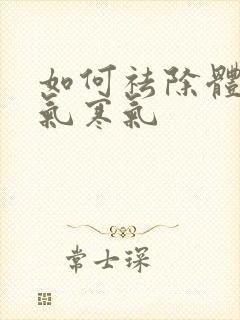 如何祛除體
氣寒氣
常士琛